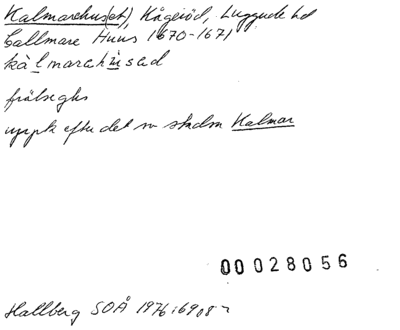 Kalmarehus(et), Kågeröd, Luggude hd
Callmare Huus 1670-1671
kàlmarahùsəd
frälsegds
uppk efter det sv staden Kalmar
00028056
Hallberg SOÅ 1976:69, 82